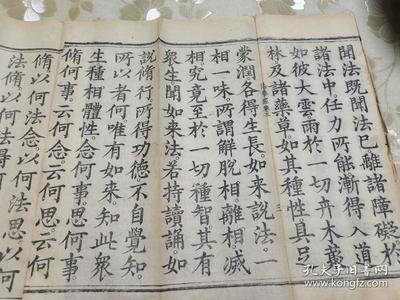 聞法既聞法已離諸障礙於
諸法中任力所能漸得入道
如彼大雲雨於一切卉木叢
林及諸藥草如其種性具足
蒙潤各得生長。如來說法。一
相一味。所謂解脫相。離相滅
相。究竟至於一切種智。其有
衆生聞如來法。若持讀誦。如
說脩行。所得功德不自覺知。
所以者何唯有如來。知此衆
生種相體性。念何事。思何事。
脩何事。云何念。云何思。云何
脩。以何法念。以何法思。以何
法脩。以何法得何法
孔夫子旧书网